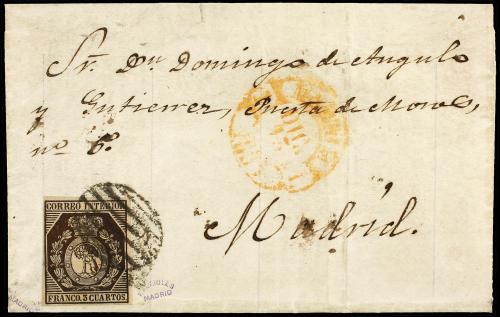 Sr. Dn. Domingo de Angulo
y Gutierrez, Puerta de Moros,
no 6.
Madrid.
CORREO INTERIOR
FRANCO. 3 CUARTOS
MADRID